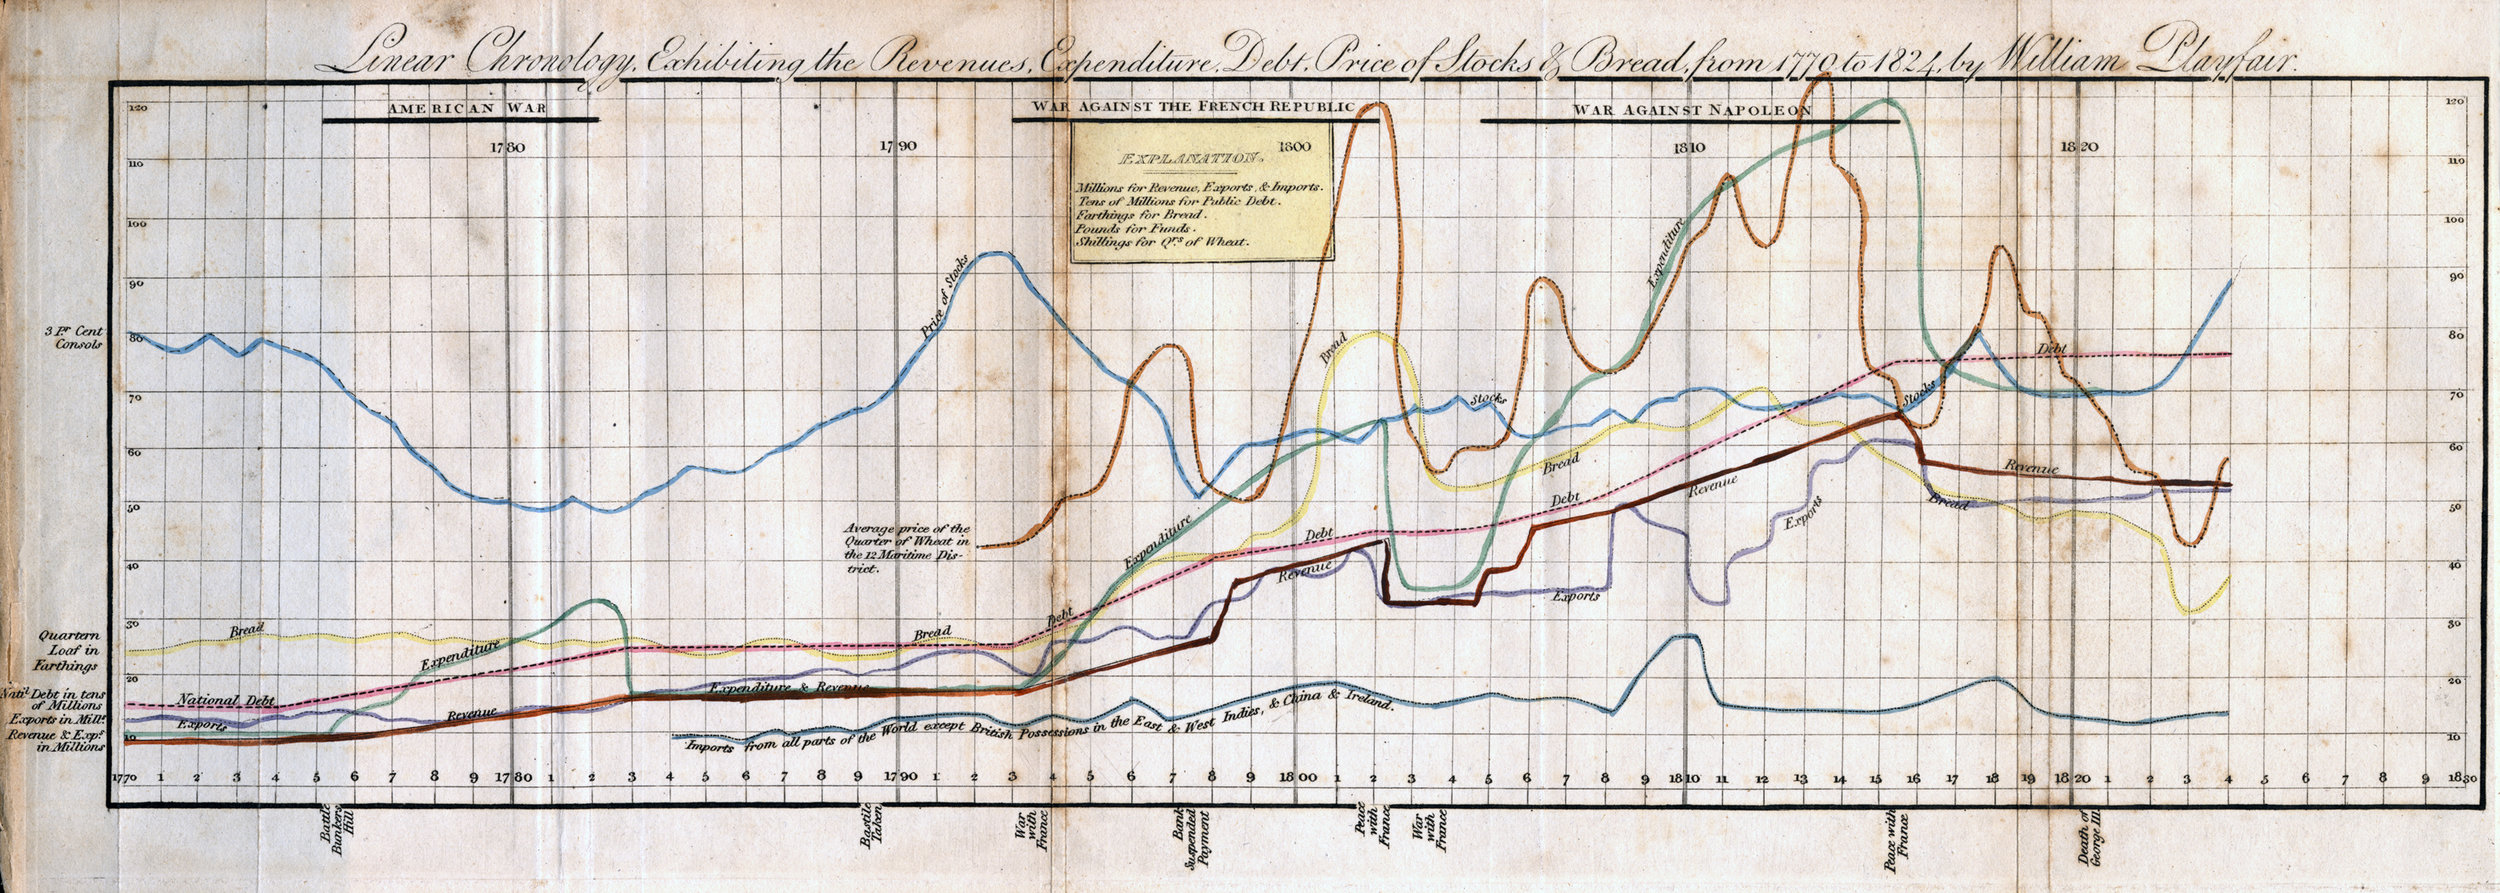 Linear Chronology, Exhibiting the Revenues, Expenditure, Debt, Price of Stocks & Bread, from 1770 to 1824, by William Playfair.
AMERICAN WAR
WAR AGAINST THE FRENCH REPUBLIC
WAR AGAINST NAPOLEON
1780
1790
1800
1810
1820
EXPLANATION.
Millions for Revenue, Exports, & Imports.
Tens of Millions for Public Debt.
Farthings for Bread.
Pounds for Funds.
Shillings for Qrs of Wheat.
120
110
100
90
80
70
60
50
40
30
20
10
3 Pr Cent
Consols
Quartern
Loaf in
Farthings
Natl Debt in tens
of Millions
Exports in Mills
Revenue & Expe
in Millions
Price of Stocks
Average price of the
Quarter of Wheat in
the 12 Maritime Dis-
trict.
Bread
Expenditure
National Debt
Exports
Revenue
Expenditure & Revenue
Bread
Debt
Expenditure
Debt
Revenue
Bread
Stocks
Bread
Debt
Exports
Expenditure
Revenue
Exports
Stocks
Debt
Revenue
Bread
Imports from all parts of the World except British Possessions in the East & West Indies, & China & Ireland.
120
110
100
90
80
70
60
50
40
30
20
10
1770 1 2 3 4 5 6 7 8 9 1780 1 2 3 4 5 6 7 8 9 1790 1 2 3 4 5 6 7 8 9 1800 1 2 3 4 5 6 7 8 9 1810 11 12 13 14 15 16 17 18 19 1820 1 2 3 4 5 6 7 8 9 1830
Battle
Bunkers
Hill
Bastile
Taken
War
with
France
Bank
Suspended
Payment
Peace
with
France
War
with
France
Peace with
France
Death of
George III